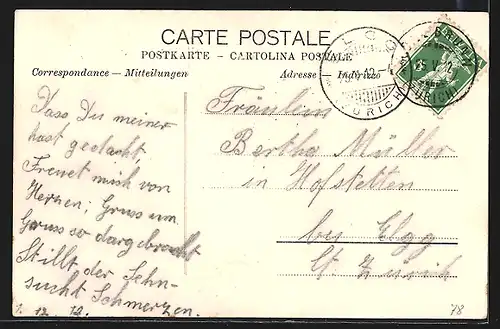 CARTE POSTALE
POSTKARTE – CARTOLINA POSTALE
Correspondance — Mitteilungen
Adresse — Indirizzo
ZÜRICH
Dass Du meiner
hast gedacht,
Freuet mich von
Herzen; Gruss um
Gruss so dargebracht
Stillt der Sehn-
sucht Schmerzen.
1. 12. 12.
Fräulein
Bertha Müller
in Hofstetten
bei Elgg
Ct. Zürich
78